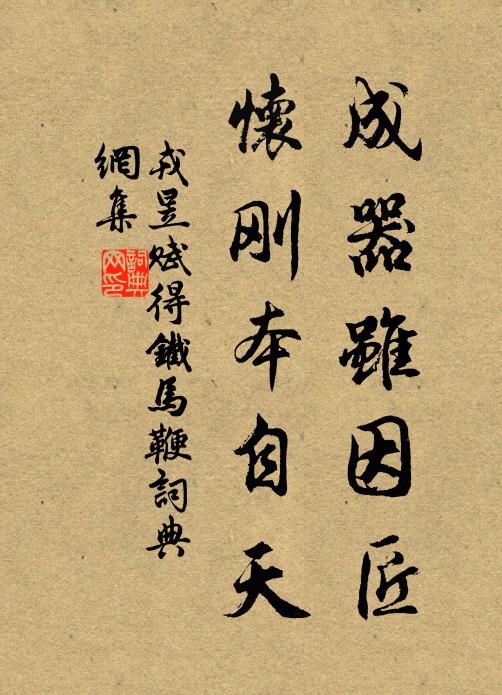 成器雖因匠
懷刚本自天
戎昱赋得鐵馬鞭詞典
網集
詞典网印